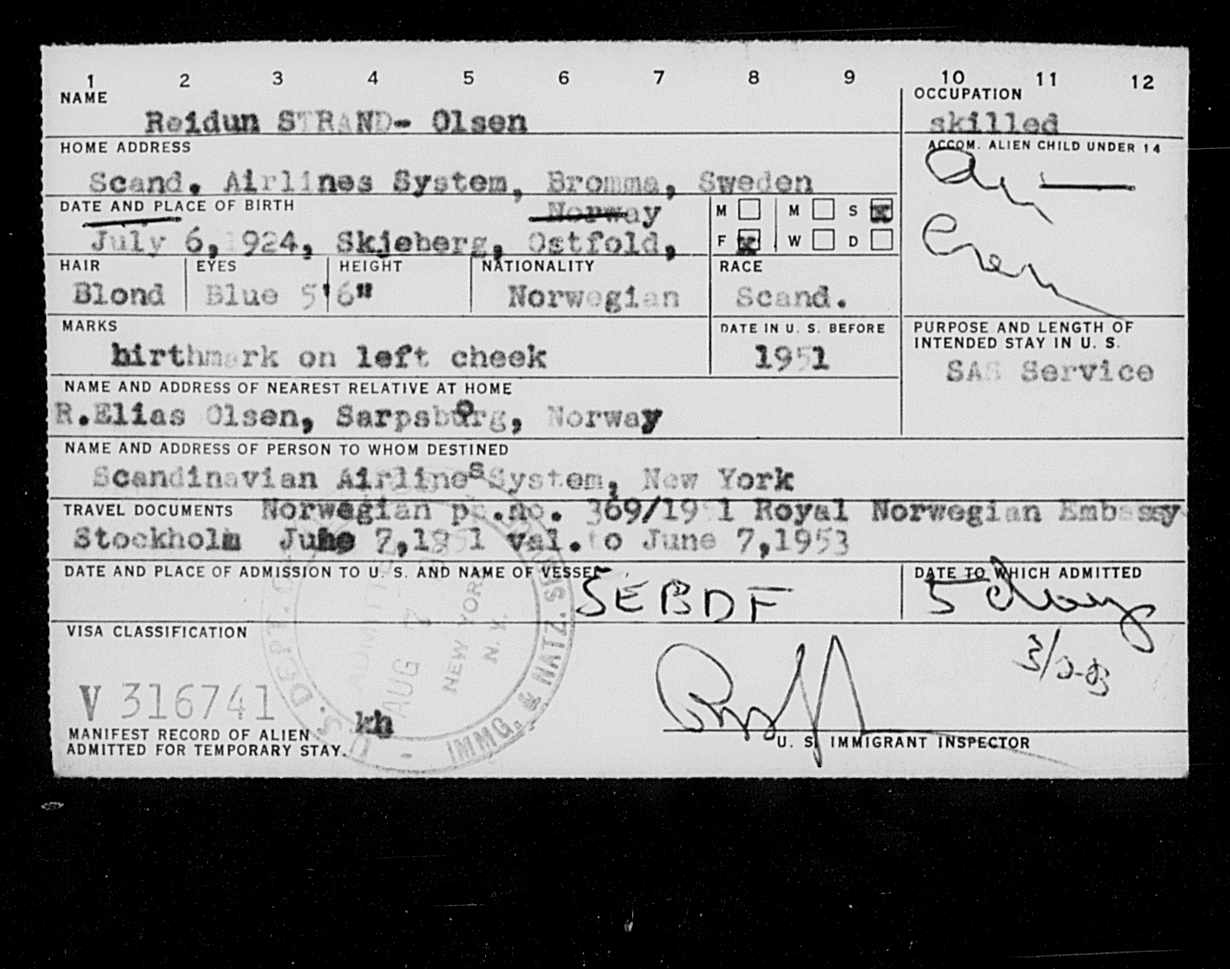 1 2 3 4 5 6 7 8 9 10 11 12
NAME
Reidun STRAND- Olsen
OCCUPATION
skilled
HOME ADDRESS
Scand. Airlines System, Bromma, Sweden
ACCOM. ALIEN CHILD UNDER 14
Air
Crew
DATE AND PLACE OF BIRTH
Norway
July 6, 1924, Skjeberg, Ostfold,
M M S x
F x W D
HAIR EYES HEIGHT NATIONALITY RACE
Blond Blue 5'6" Norwegian Scand.
MARKS
birthmark on left cheek
DATE IN U. S. BEFORE
1951
PURPOSE AND LENGTH OF
INTENDED STAY IN U. S.
SAS Service
NAME AND ADDRESS OF NEAREST RELATIVE AT HOME
R.Elias Olsen, Sarpsborg, Norway
NAME AND ADDRESS OF PERSON TO WHOM DESTINED
Scandinavian Airlines System, New York
TRAVEL DOCUMENTS Norwegian pp.no. 369/1951 Royal Norwegian Embassy
Stockholm June 7,1951 val. to June 7,1953
DATE AND PLACE OF ADMISSION TO U. S. AND NAME OF VESSEL
SEBDF
DATE TO WHICH ADMITTED
VISA CLASSIFICATION
V 316741
kh
U.S. DEPT. OF
IMMG. & NATZ. SER
ADMITTED
AUG 7
NEW YORK
N.Y.
MANIFEST RECORD OF ALIEN
ADMITTED FOR TEMPORARY STAY.
U. S. IMMIGRANT INSPECTOR